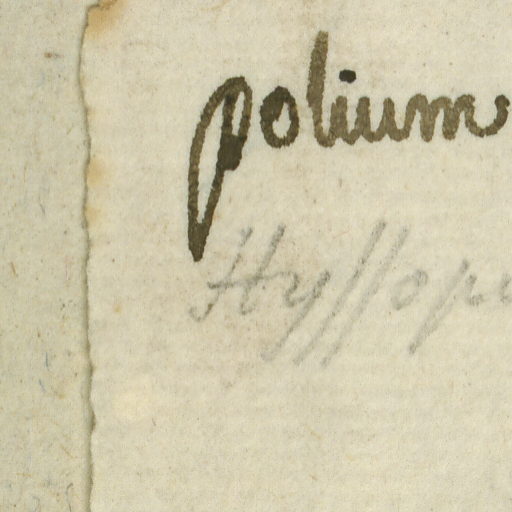 polium
Hyssop